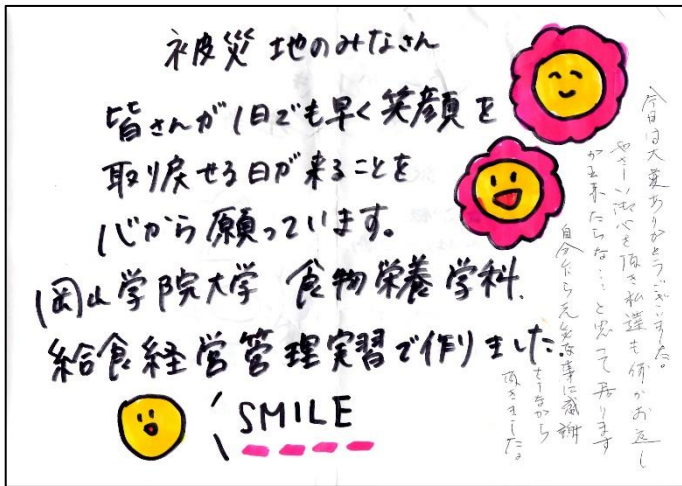 被災地のみなさん
皆さんが1日でも早く笑顔を
取り戻せる日が来ることを
心から願っています。
岡山学院大学 食物栄養学科
給食経営管理実習で作りました。
SMILE
今日は大変ありがとうございました。
やさしい御心を頂き私達も何かお返し
が出来たらな…と思って居ります
自分から元気な事に感謝
しながら
頂きました。